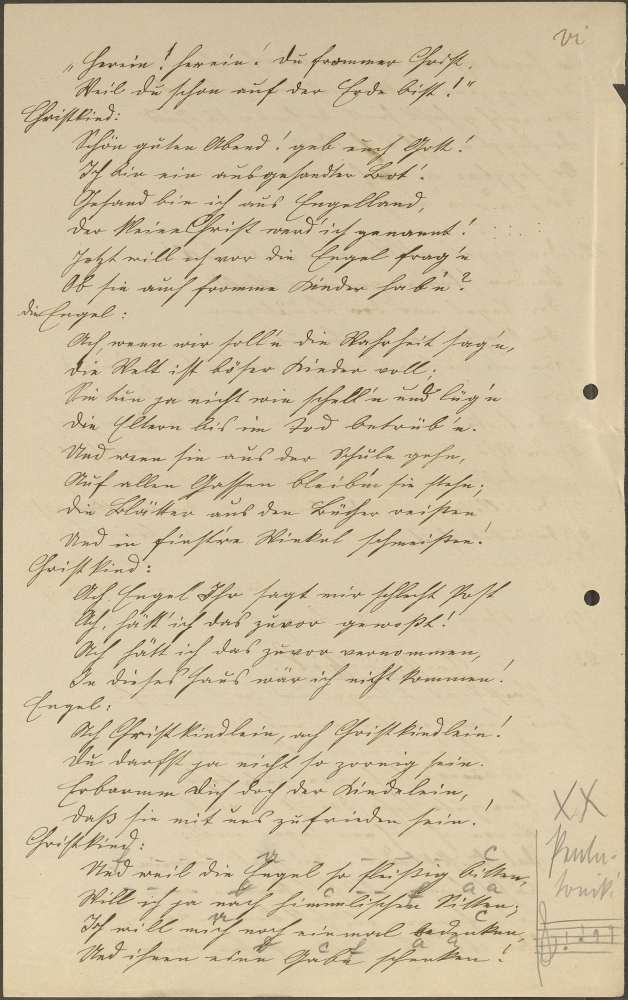 vi
„Herein! herein! du frommer Christ.
Weil du schon auf der Erde bist!"
Christkind:
Schön guten Abend! geb euch Gott!
Ich bin ein ausgesandter Bot'.
Gesand bin ich aus Engelland,
der kleine Christ werd' ich genannt!
Jetzt will ich vor die Engel frag'n
Ob sie auch fromme Kinder hab'n?
die Engel:
Ach wenn wir soll'n die Wahrheit sag'n,
die Welt ist böser Kinder voll;
Sie tun ja nicht wie schell'n und lüg'n
die Eltern bis in Tod betrüb'n.
Und wenn sie aus der Schule gehn,
Auf allen Gassen bleib'n sie stehn;
die Blätter aus den Bücher reißen
Und in finst're Winkel schmeißen!
Christkind:
Ach, Engel Ihr sagt mir schlecht Post
Ach, hätt' ich das zuvor gewoßt!
Ach hätt ich das zuvor vernommen,
In dieses Haus wär ich nicht kommen!
Engel:
Ach Christkindlein, ach Christkindlein!
Du darfst ja nicht so zornig sein.
Erbarmm Dich doch der Kindelein,
daß sie mit uns zufrieden sein!
Christkind:
Und weil die Engel so fleißig bitten,
Will ich ja nach himmlischen Sitten;
Ich will mich noch einmal bedenken,
Und ihnen eine Gabe schenken!
XX
Penta-
tonik!